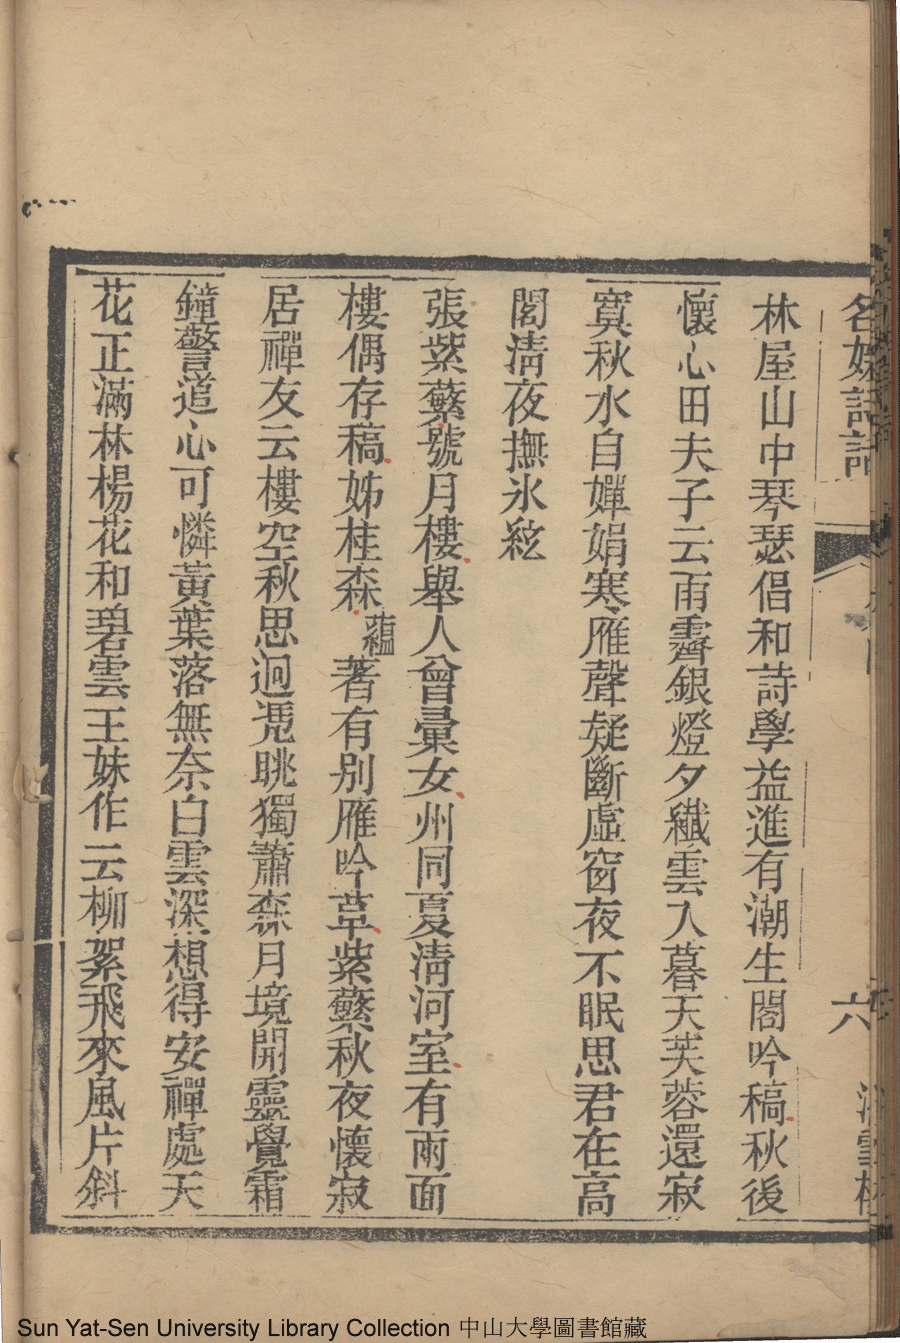 名媛詩話
六
林屋山中琴瑟倡和詩學益進有潮生閣吟稿秋後
懷心田夫子云雨霽銀燈夕纖雲入暮天芙蓉還寂
寞秋水自嬋娟寒雁聲疑斷虛窗夜不眠思君在高
閣淸夜撫氷絃
張紫蘩號月樓舉人曾彙女州同夏淸河室有雨面
樓偶存稿姊桂森蘊著有别雁吟草紫蘩秋夜懷寂
居禪友云樓空秋思迥凭眺獨蕭森月境開靈覺霜
鐘警道心可憐黃葉落無奈白雲深想得安禪處天
花正滿林楊花和碧雲王妹作云柳絮飛來風片斜
Sun Yat-Sen University Library Collection 中山大學圖書館藏